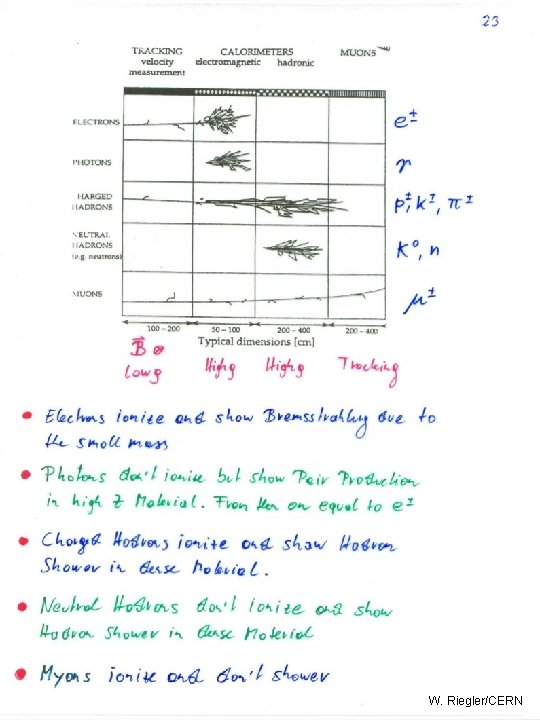 23
TRACKING CALORIMETERS MUONS
velocity electromagnetic hadronic
measurement
ELECTRONS e±
PHOTONS γ
HARGED
HADRONS p±, k±, π±
NEUTRAL
HADRONS K⁰, n
(e.g. neutrons)
MUONS μ±
100 - 200 50 - 100 200 - 400 200 - 400
Typical dimensions [cm]
B⃗ ⊗
Low ρ High ρ High ρ Tracking
• Electrons ionize and show Bremsstrahlung due to
the small mass
• Photons don't ionize but show Pair Production
in high Z Material. From then on equal to e±
• Charged Hadrons ionize and show Hadron
Shower in dense Material.
• Neutral Hadrons don't ionize and show
Hadron Shower in dense Material
• Myons ionize and don't shower
W. Riegler/CERN